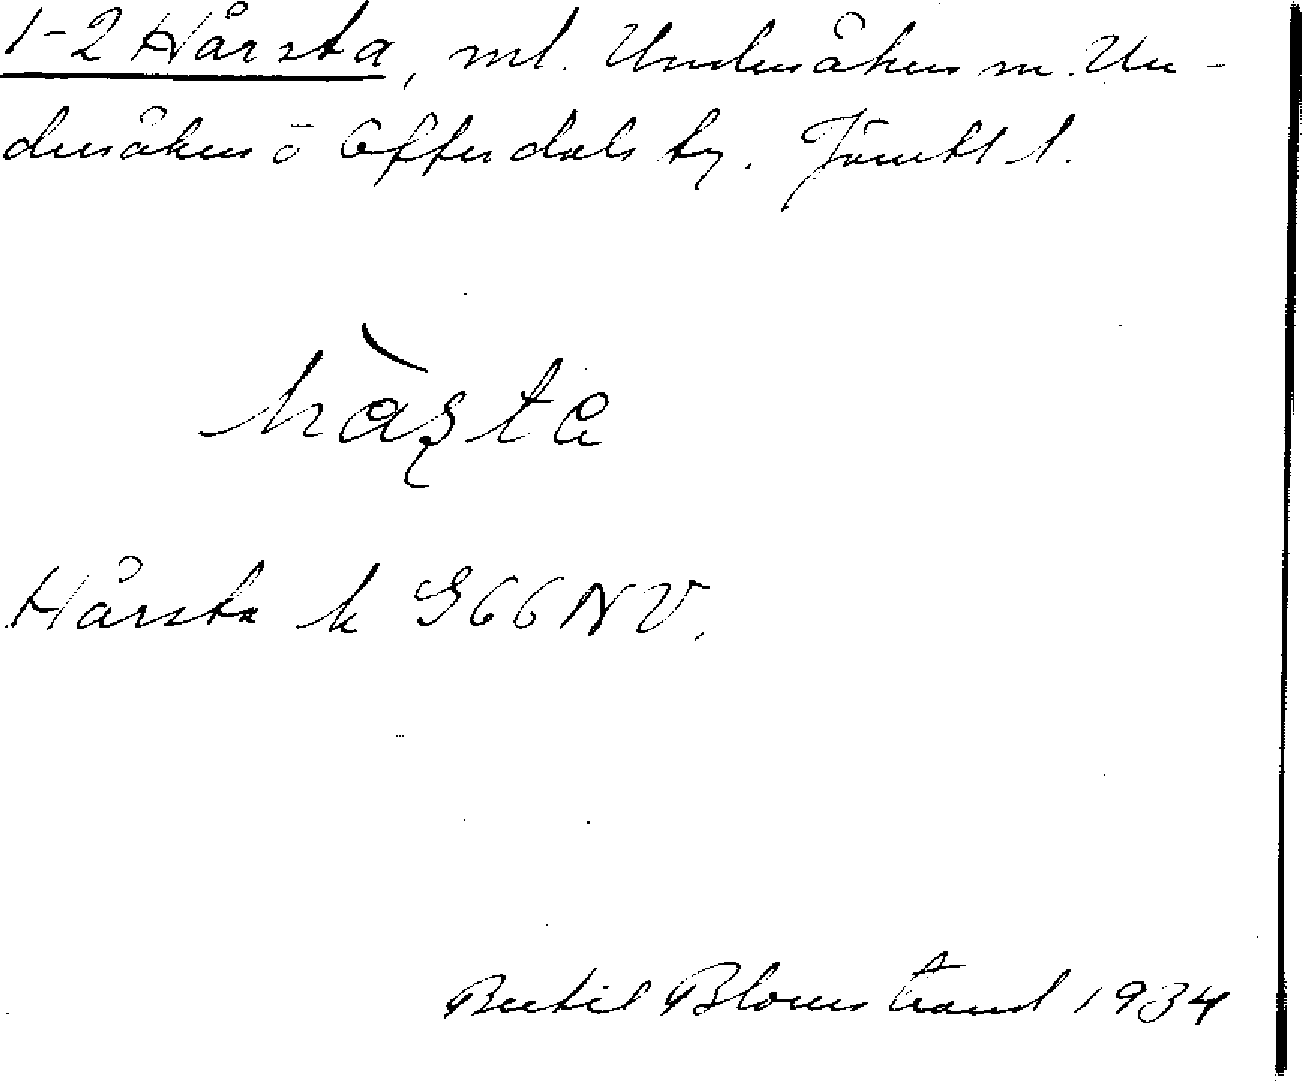 1-2 Hårsta, ml. Undersåkers sn. Un-
dersåkers o Offerdals tg. Jämtl l.
hàʂta
Hårsta k G66NV.
Bertil Blomstrand 1934